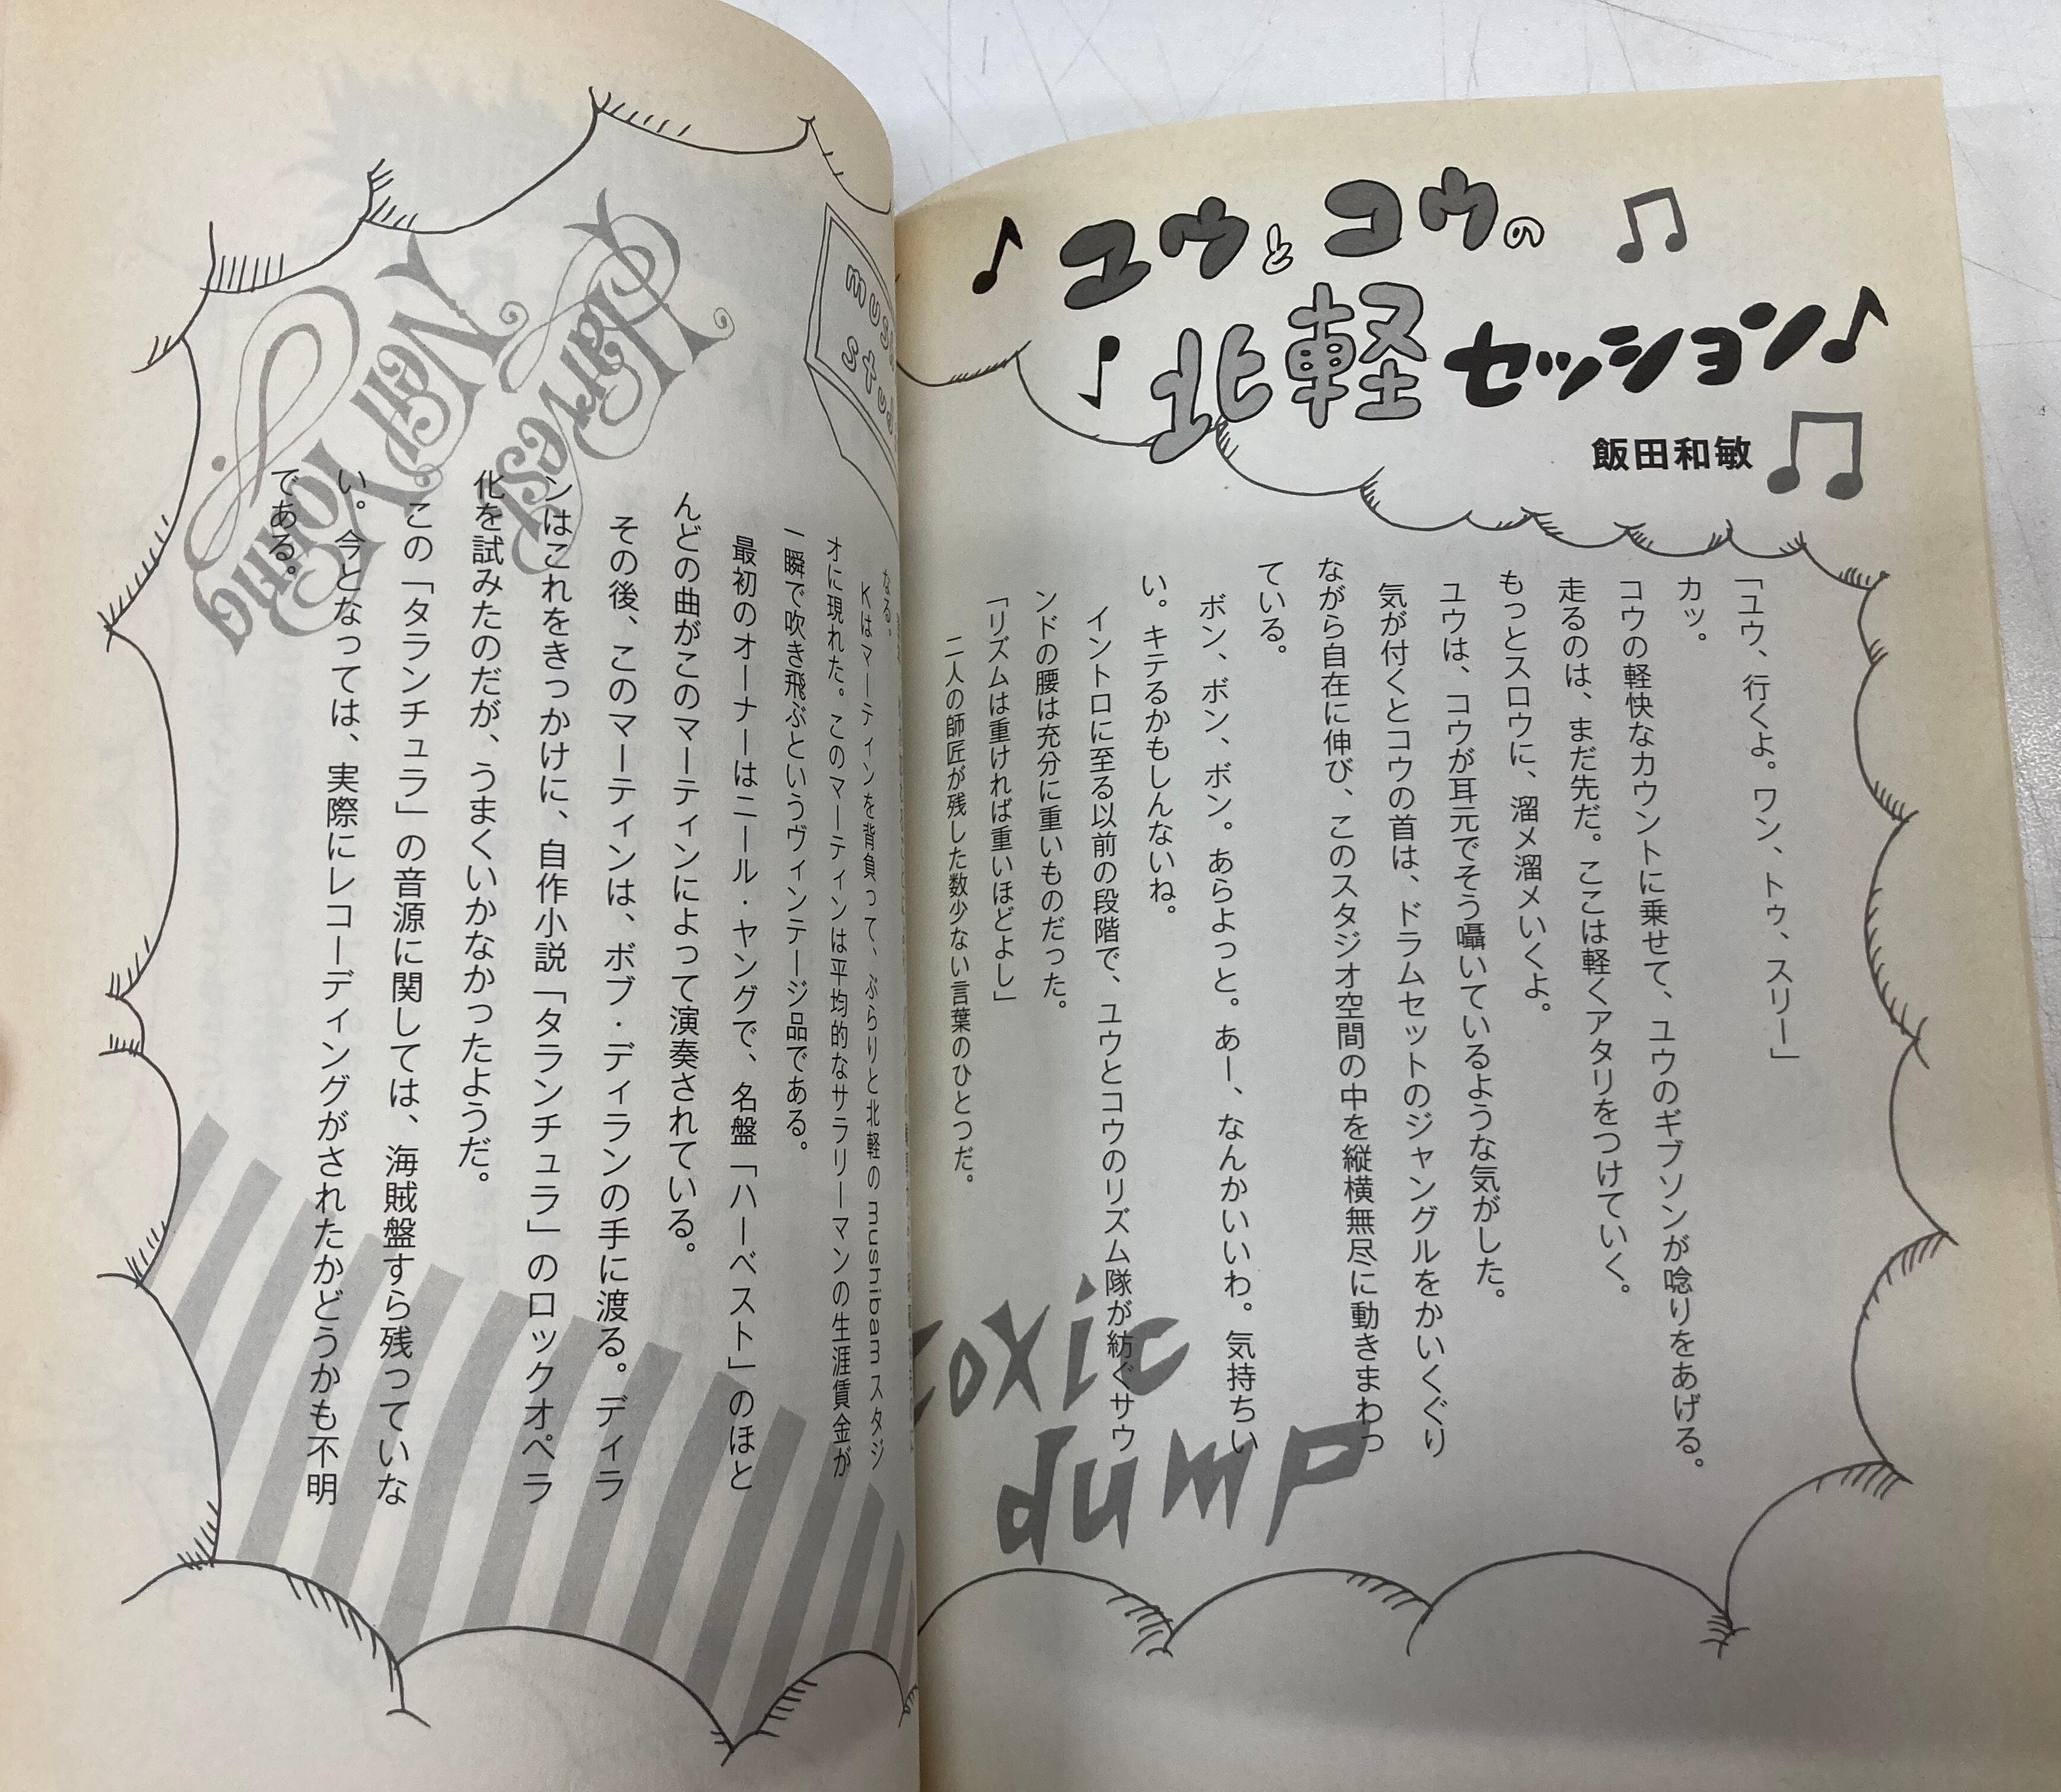 ユウとコウの
北軽セッション
飯田和敏
「ユウ、行くよ。ワン、トゥ、スリー」
カッ。
コウの軽快なカウントに乗せて、ユウのギブソンが唸りをあげる。
走るのは、まだ先だ。ここは軽くアタリをつけていく。
もっとスロウに、溜メ溜メいくよ。
ユウは、コウが耳元でそう囁いているような気がした。
気が付くとコウの首は、ドラムセットのジャングルをかいくぐり
ながら自在に伸び、このスタジオ空間の中を縦横無尽に動きまわっ
ている。
ボン、ボン、ボン。あらよっと。あー、なんかいいわ。気持ちい
い。キテるかもしんないね。
イントロに至る以前の段階で、ユウとコウのリズム隊が紡ぐサウ
ンドの腰は充分に重いものだった。
「リズムは重ければ重いほどよし」
二人の師匠が残した数少ない言葉のひとつだ。
toxic
dump
なる。
Kはマーティンを背負って、ぶらりと北軽のmushibamスタジ
オに現れた。このマーティンは平均的なサラリーマンの生涯賃金が
一瞬で吹き飛ぶというヴィンテージ品である。
最初のオーナーはニール・ヤングで、名盤「ハーベスト」のほと
んどの曲がこのマーティンによって演奏されている。
その後、このマーティンは、ボブ・ディランの手に渡る。ディラ
ンはこれをきっかけに、自作小説「タランチュラ」のロックオペラ
化を試みたのだが、うまくいかなかったようだ。
この「タランチュラ」の音源に関しては、海賊盤すら残っていな
い。今となっては、実際にレコーディングがされたかどうかも不明
である。
Harvest
Neil Young